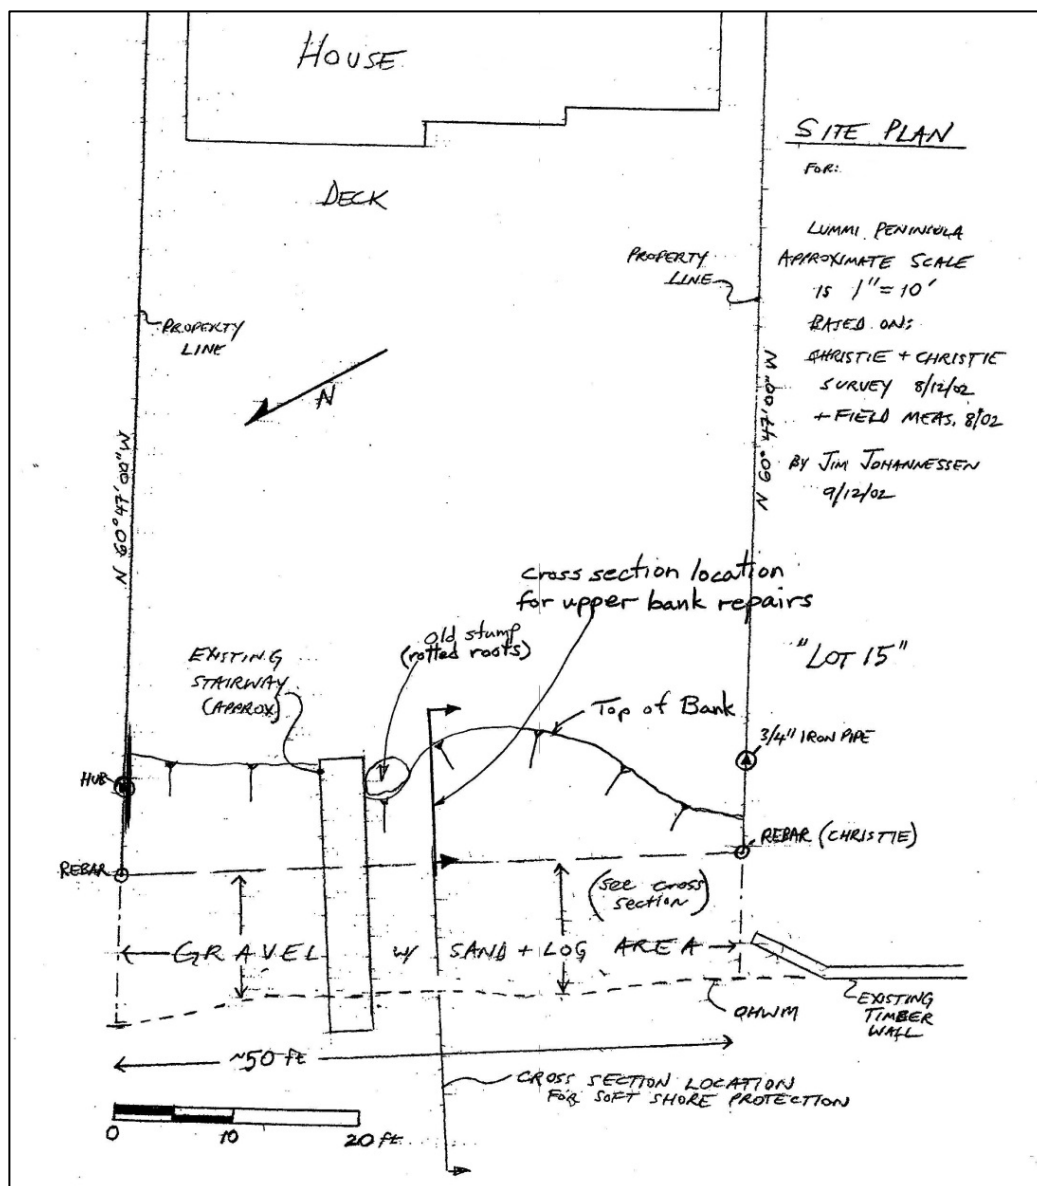 HOUSE
DECK
SITE PLAN
FOR:
LUMMI PENINSULA
APPROXIMATE SCALE
IS 1"=10'
BASED ON:
CHRISTIE + CHRISTIE
SURVEY 8/12/02
+ FIELD MEAS. 8/02
BY JIM JOHANNESSEN
9/12/02
PROPERTY
LINE
PROPERTY
LINE
N
N 60°47'00"W
N 60°47'00"W
cross section location
for upper bank repairs
old stump
(rotted roots)
"LOT 15"
EXISTING
STAIRWAY
(APPROX)
Top of Bank
3/4" IRON PIPE
HUB
REBAR (CHRISTIE)
REBAR
(see cross
section)
GRAVEL w/ SAND + LOG AREA
OHWM
EXISTING
TIMBER
WALL
~50 ft
CROSS SECTION LOCATION
FOR SOFT SHORE PROTECTION
0 10 20 ft.